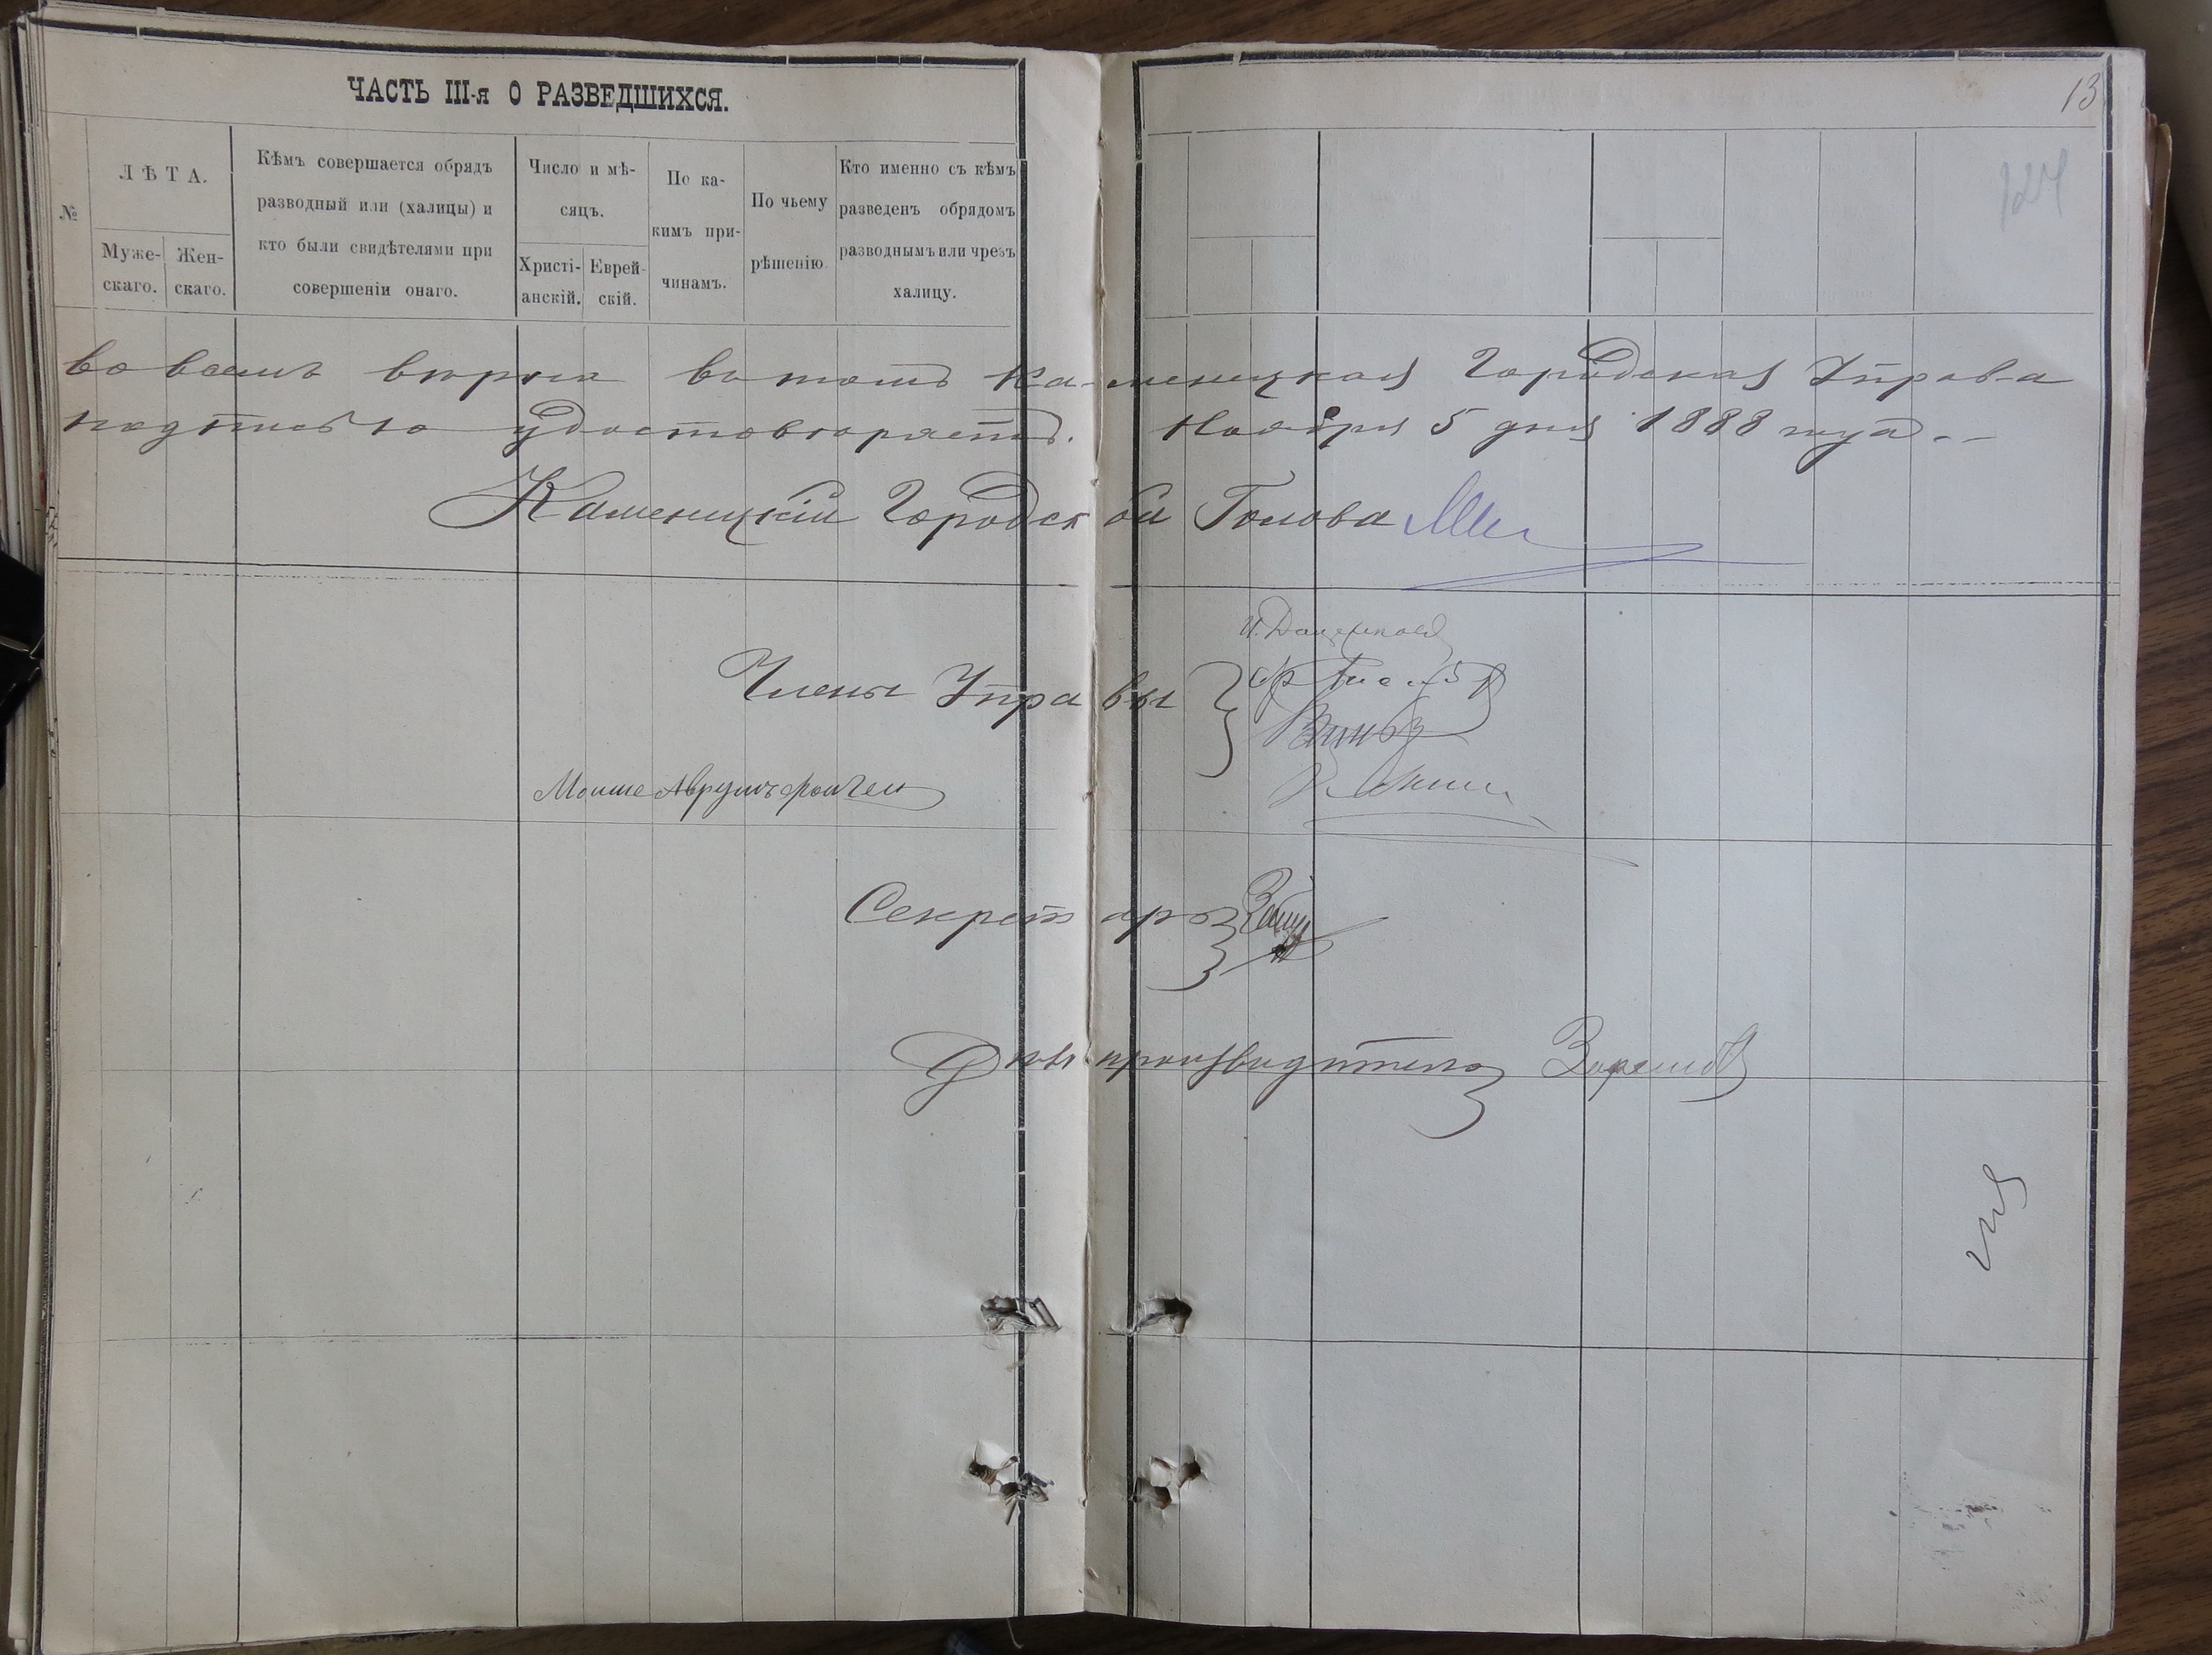 ЧАСТЬ III-я О РАЗВЕДШИХСЯ.
13
№
ЛѢТА.
Муже-
скаго.
Жен-
скаго.
Кѣмъ совершается обрядъ
разводный или (халицы) и
кто были свидѣтелями при
совершеніи онаго.
Число и мѣ-
сяцъ.
Христі-
анскій.
Еврей-
скій.
По ка-
кимъ при-
чинамъ.
По чьему
рѣшенію.
Кто именно съ кѣмъ
разведенъ обрядомъ
разводнымъ или чрезъ
халицу.
во всемъ вѣрна въ томъ Каменецкая Городская Управа
подписью удостовѣряетъ. Ноября 5 дня 1888 года.
Каменецкій Городской Голова
Члены Управы
Мошме Аврумъ
Секретарь
Дѣлопроизводитель